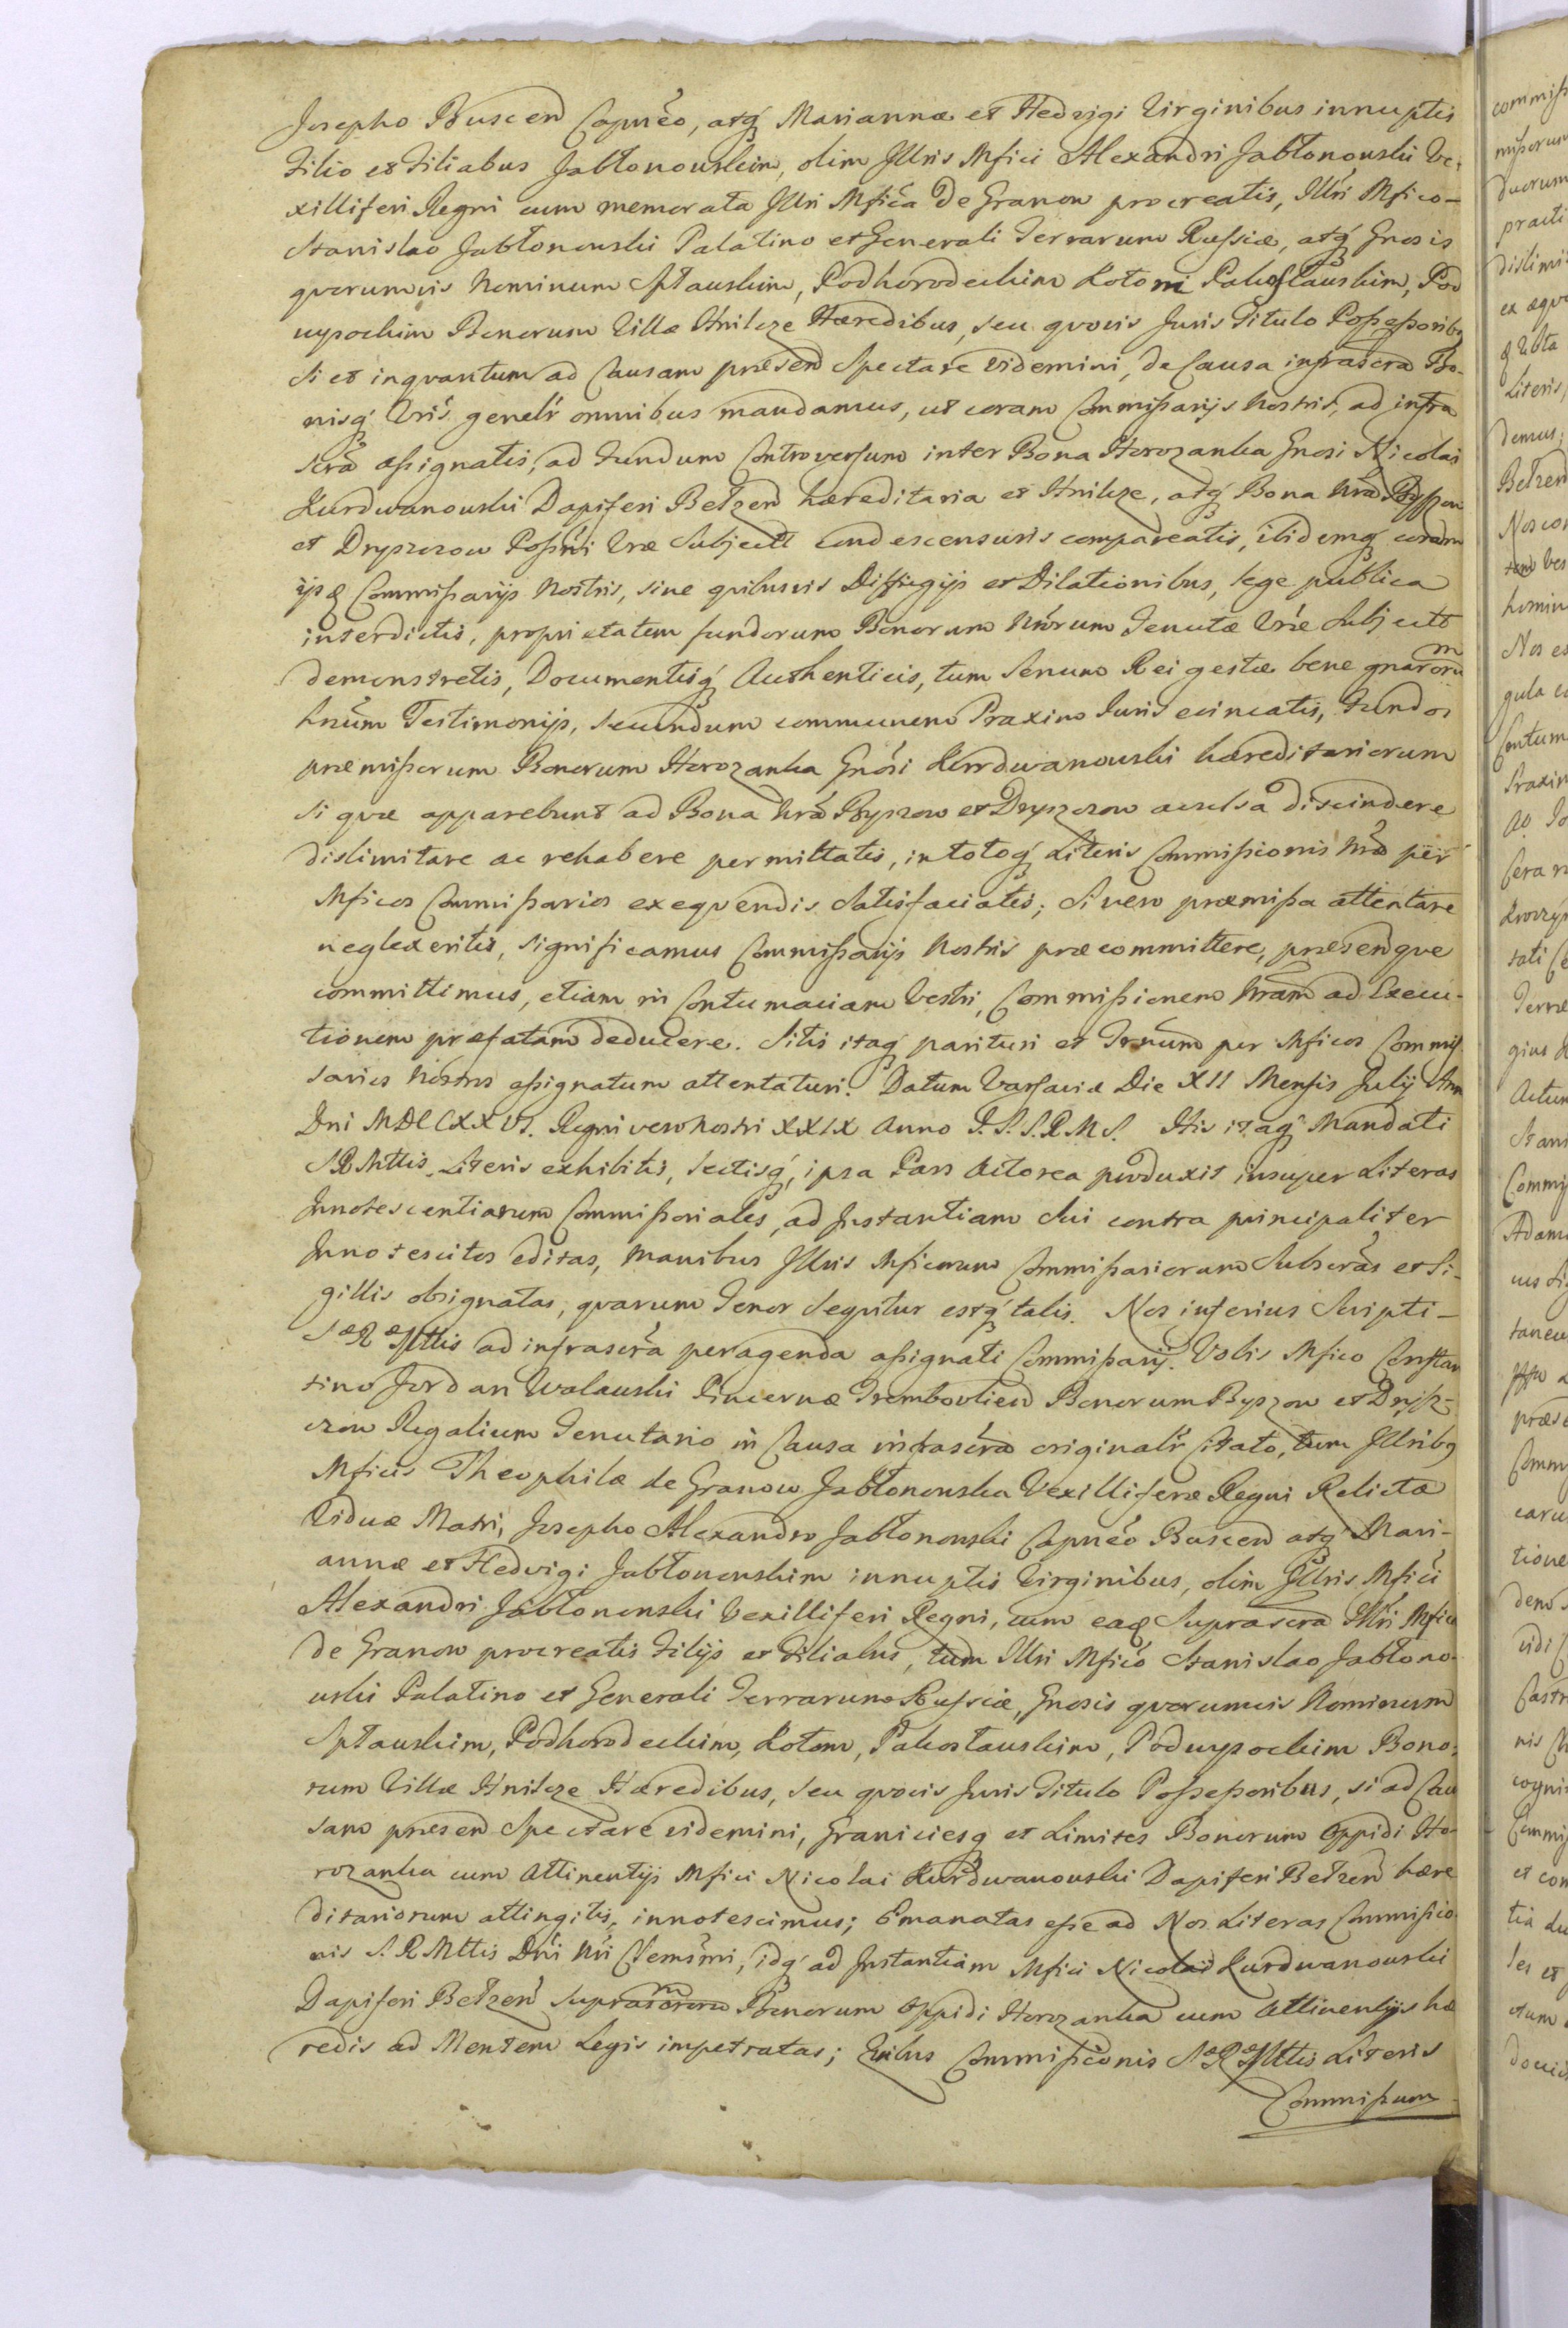 Josepho Buscen Capneo, atq Mariannæ et Hedvigi Virginibus innuptis
Filio et Filiabus Jabłonowskim, olim Illris Mfici Alexandri Jabłonowski Ve-
xilliferi Regni cum memorata Illri Mfica De Granow procreatis, Illri Mfico
Stanislao Jabłonowski Palatino et Generali Terrarum Russiæ, atq Gnosis
quorumvis Nominum Spławskim, Podhorodeckim Kotom Pakosławskim, Pod
wysockim Bonorum Villæ Hnilcze Hæredibus, seu quovis Juris Titulo Possessoribq
Si et inquantum ad Causam præsen Spectare videmini, de Causa infrascra Bo-
nisq Vris genelr omnibus mandamus, ut coram Commissarijs Nostris, ad infra
scra assignatis, ad Fundum Controversum inter Bona Horozanka Gnosi Nicolai
Kurdwanowski Dapiferi Bełzen hæreditaria et Hnilcze, atq Bona Nra Byszow
et Dryszczow Possni Vræ Subject condescensuris compareatis, ibidemq coram
ijsq Commissarijs Nostris, sine quibusvis Diffugijs et Dilationibus, lege publica
interdictis, proprietatem fundorum Bonorum Nrorum Tenutæ Vræ Subject
demonstretis, Documentisq Authenticis, tum Senum Rei gestæ bene gnarorum
hnum Testimonijs, secundum communem Praxim Juris evincatis, Fundos
præmissorum Bonorum Horozanka Gnosi Kurdwanowski hæreditariorum
Si quæ apparebunt ad Bona Nra Byszow et Dryszczow avulsa discindere
dislimitare ac rehabere permittatis, in totoq Literis Commissionis Nræ per
Mficos Commissarios exequendis Satisfaciatis; Si vero præmissa attentare
neglexeritis, significamus Commissarijs Nostris præcommittere, præsenque
committimus, etiam in Contumaciam Vestri, Commissionem Nram ad Execu-
tionem præfatam deducere. Sitis itaq parituri et Trnum per Mficos Commis
sarios Nostros assignatum attentaturi. Datum Varsaviæ Die XII Mensis Julij Ann
Dni MDCCXXVI. Regni vero Nostri XXIX Anno P.S.S.R.M.S. His itaq Mandati
SRMttis Literis exhibitis, lectisq, ipsa Pars Actorea produxit insuper Literas
Innotescentiarum Commissoriales, ad Instantiam Sui contra principaliter
Innotescitos editas, manibus Illris Mficorum Commissariorum Subscras et Si-
gillis obsignatas, quarum Tenor Sequitur estq talis. Nos inferius Scripti
SæRæMttis ad infrascra peragenda assignati Commissarij. Vobis Mfico Constan
tino Jordan Walawski Pincernæ Trembovlien Bonorum Byszow et Drysz-
czow Regalium Tenutario in Causa infrascra originalr Citato, tum Illribq
Mficis Theophilæ de Granow Jabłonowska Vexilliferæ Regni Relictæ
Viduæ Matri, Josepho Alexandro Jabłonowski Capneo Buscen atq Mari-
annæ et Hedvigi Jabłonowskim innuptis Virginibus, olim Illris Mfici
Alexandri Jabłonowski Vexilliferi Regni, cum eaq Suprascra Illri Mfica
de Granow procreatis Filijs et Filiabus, tum Illri Mfico Stanislao Jabłono-
wski Palatino et Generali Terrarum Russiæ, Gnosis quorumvis Nominum
Spławskim, Podhorodeckim, Kotom, Pakosławskim, Podwysockim Bono-
rum Villæ Hnilcze Hæredibus, Seu quovis Juris Titulo Possessoribus, si ad Cau
sam præsen Spectare videmini, Graniciesq et Limites Bonorum Oppidi Ho-
rozanka cum Attinentijs Mfici Nicolai Kurdwanowski Dapiferi Bełzen hære
ditariorum attingitis, innotescimus; Emanatas esse ad Nos Literas Commissio
nis S.R.Mttis Dni Nri Clemsmi, idq ad Instantiam Mfici Nicolai Kurdwanowski
Dapiferi Bełzen Suprascrorum Bonorum Oppidi Horozanka cum Attinentijs hæ
redis ad Mentem Legis impetratas; Quibus Commissionis SæRæMttis Literis
Commissum